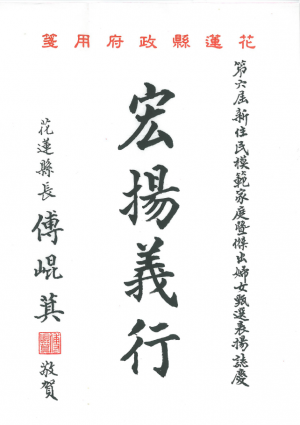 花蓮縣政府用箋
第六屆新住民模範家庭暨傑出婦女甄選表揚誌慶
宏揚義行
花蓮縣長 傅崐萁 敬賀